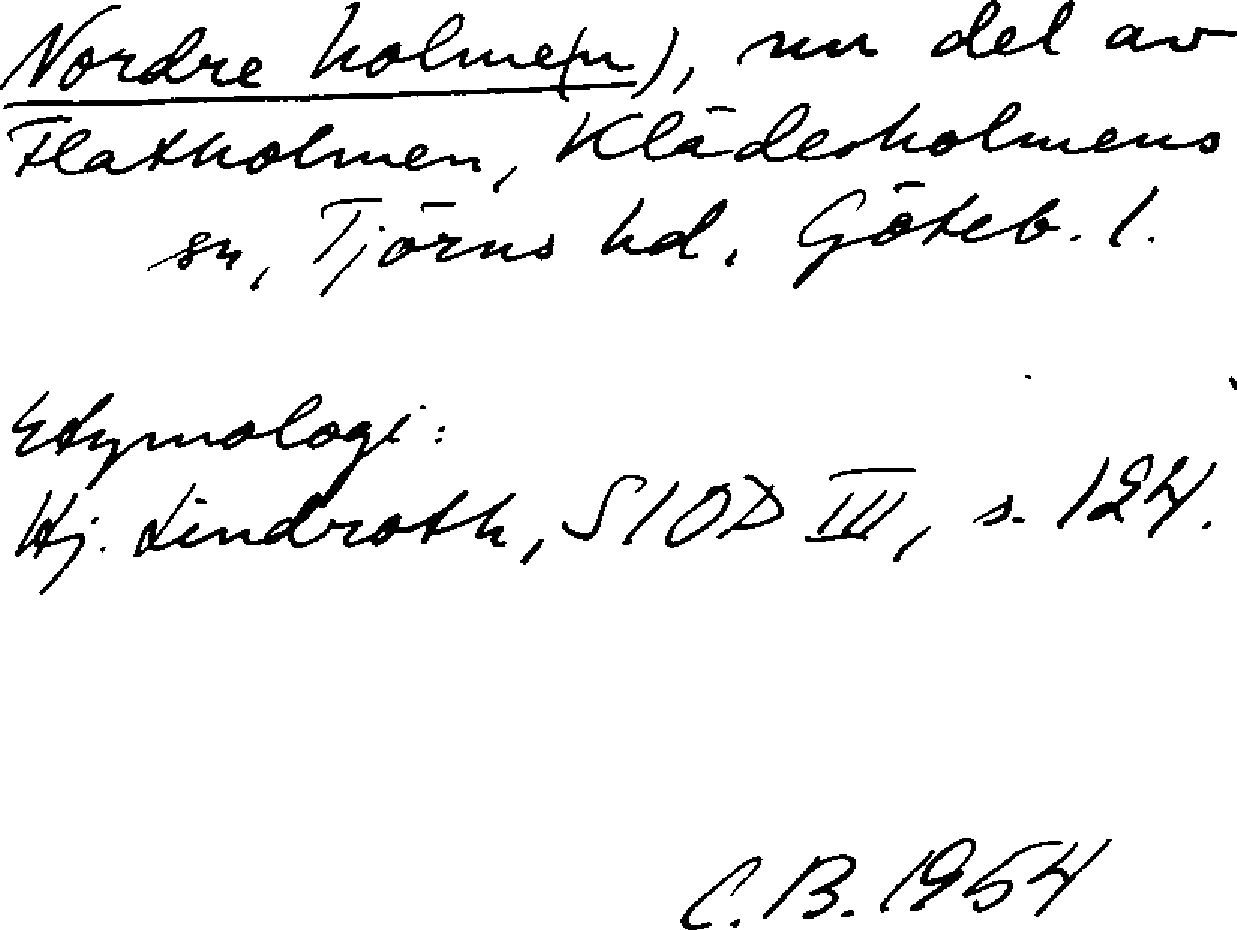 Nordre holme(n), nu del av
Flatholmen, Klädesholmens
sn, Tjörns hd, Göteb. l.
Etymologi:
Hj. Lindroth, SIOD III, s. 124.
C.B. 1954